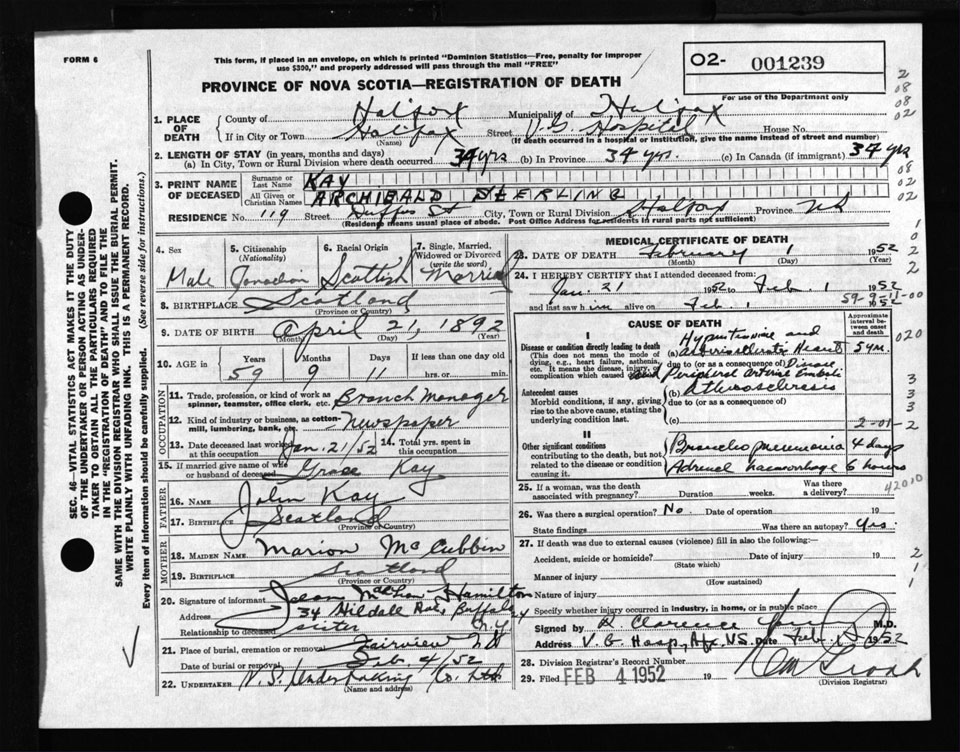 FORM 6
This form, if placed in an envelope, on which is printed "Dominion Statistics—Free, penalty for improper
use $300," and properly addressed will pass through the mail "FREE"
O2- 001239
For use of the Department only
PROVINCE OF NOVA SCOTIA—REGISTRATION OF DEATH
1. PLACE OF DEATH
County of Halifax Municipality of Halifax
If in City or Town Halifax (Name) Street V.G. Hospital House No.
(If death occurred in a hospital or institution, give the name instead of street and number)
2. LENGTH OF STAY (in years, months and days)
(a) In City, Town or Rural Division where death occurred 34 yrs (b) In Province 34 yrs. (c) In Canada (if immigrant) 34 yrs
3. PRINT NAME OF DECEASED
Surname or Last Name KAY
All Given or Christian Names ARCHIBALD STERLING
RESIDENCE No. 119 Street Duffus St City, Town or Rural Division Halifax Province NS
(Residence means usual place of abode. Post Office Address for residents in rural parts not sufficient)
4. Sex Male
5. Citizenship (Nationality) Canadian
6. Racial Origin Scottish
7. Single, Married, Widowed or Divorced (write the word) Married
8. BIRTHPLACE Scotland
(Province or Country)
9. DATE OF BIRTH April 21, 1892
(Month) (Day) (Year)
10. AGE Years 59 Months 9 Days 11 If less than one day old hrs. or min.
OCCUPATION
11. Trade, profession, or kind of work as spinner, teamster, office clerk, etc. Branch Manager
12. Kind of industry or business, as cotton-mill, lumbering, bank, etc. Newspaper
13. Date deceased last worked at this occupation Jan. 21/52 14. Total yrs. spent in this occupation
15. If married give name of wife or husband of deceased Grace Kay
FATHER
16. NAME John Kay
17. BIRTHPLACE Scotland
(Province or Country)
MOTHER
18. MAIDEN NAME Marion McCubbin
19. BIRTHPLACE Scotland
(Province or Country)
20. Signature of informant Hamilton
Address 34 Buffalo N.Y.
Relationship to deceased sister
21. Place of burial, cremation or removal Fairview
Date of burial or removal Feb. 4/52
22. UNDERTAKER N.S. Undertaking Co. Ltd
(Name and address)
MEDICAL CERTIFICATE OF DEATH
23. DATE OF DEATH February 1 1952
(Month) (Day) (Year)
24. I HEREBY CERTIFY that I attended deceased from:
Jan. 21 1952 to Feb. 1 1952
and last saw him alive on Feb. 1 1952
59-9-11-00
CAUSE OF DEATH
Approximate interval between onset and death
Disease or condition directly leading to death
(This does not mean the mode of dying, e.g., heart failure, asthenia, etc. It means the disease, injury, or complication which caused death)
(a) Hypertensive and arteriosclerotic Heart Disease 5 yrs.
due to (or as a consequence of)
Peripheral Arterial Emboli
Antecedent causes
Morbid conditions, if any, giving rise to the above cause, stating the underlying condition last.
(b) Atherosclerosis
due to (or as a consequence of)
(c)
II
Other significant conditions contributing to the death, but not related to the disease or condition causing it.
Bronchopneumonia 4 days
Adrenal haemorrhage 6 hours
25. If a woman, was the death associated with pregnancy? Duration weeks. Was there a delivery?
26. Was there a surgical operation? No Date of operation 19
State findings Was there an autopsy? Yes.
27. If death was due to external causes (violence) fill in also the following:—
Accident, suicide or homicide? Date of injury 19
(State which)
Manner of injury
(How sustained)
Nature of injury
Specify whether injury occurred in industry, in home, or in public place
Signed by Clarence M.D.
Address V.G. Hosp., Hfx, NS. Date Feb. 1 1952
28. Division Registrar's Record Number
29. Filed FEB 4 1952 19
(Division Registrar)
SEC. 46—VITAL STATISTICS ACT MAKES IT THE DUTY
OF THE UNDERTAKER OR PERSON ACTING AS UNDER-
TAKER TO OBTAIN ALL THE PARTICULARS REQUIRED
IN THE "REGISTRATION OF DEATH" AND TO FILE THE
SAME WITH THE DIVISION REGISTRAR WHO SHALL ISSUE THE BURIAL PERMIT.
WRITE PLAINLY WITH UNFADING INK. THIS IS A PERMANENT RECORD.
Every item of information should be carefully supplied. (See reverse side for instructions.)
2
08
08
02
08
02
02
020
3
3
3
2-01-2
42010
2
1
1